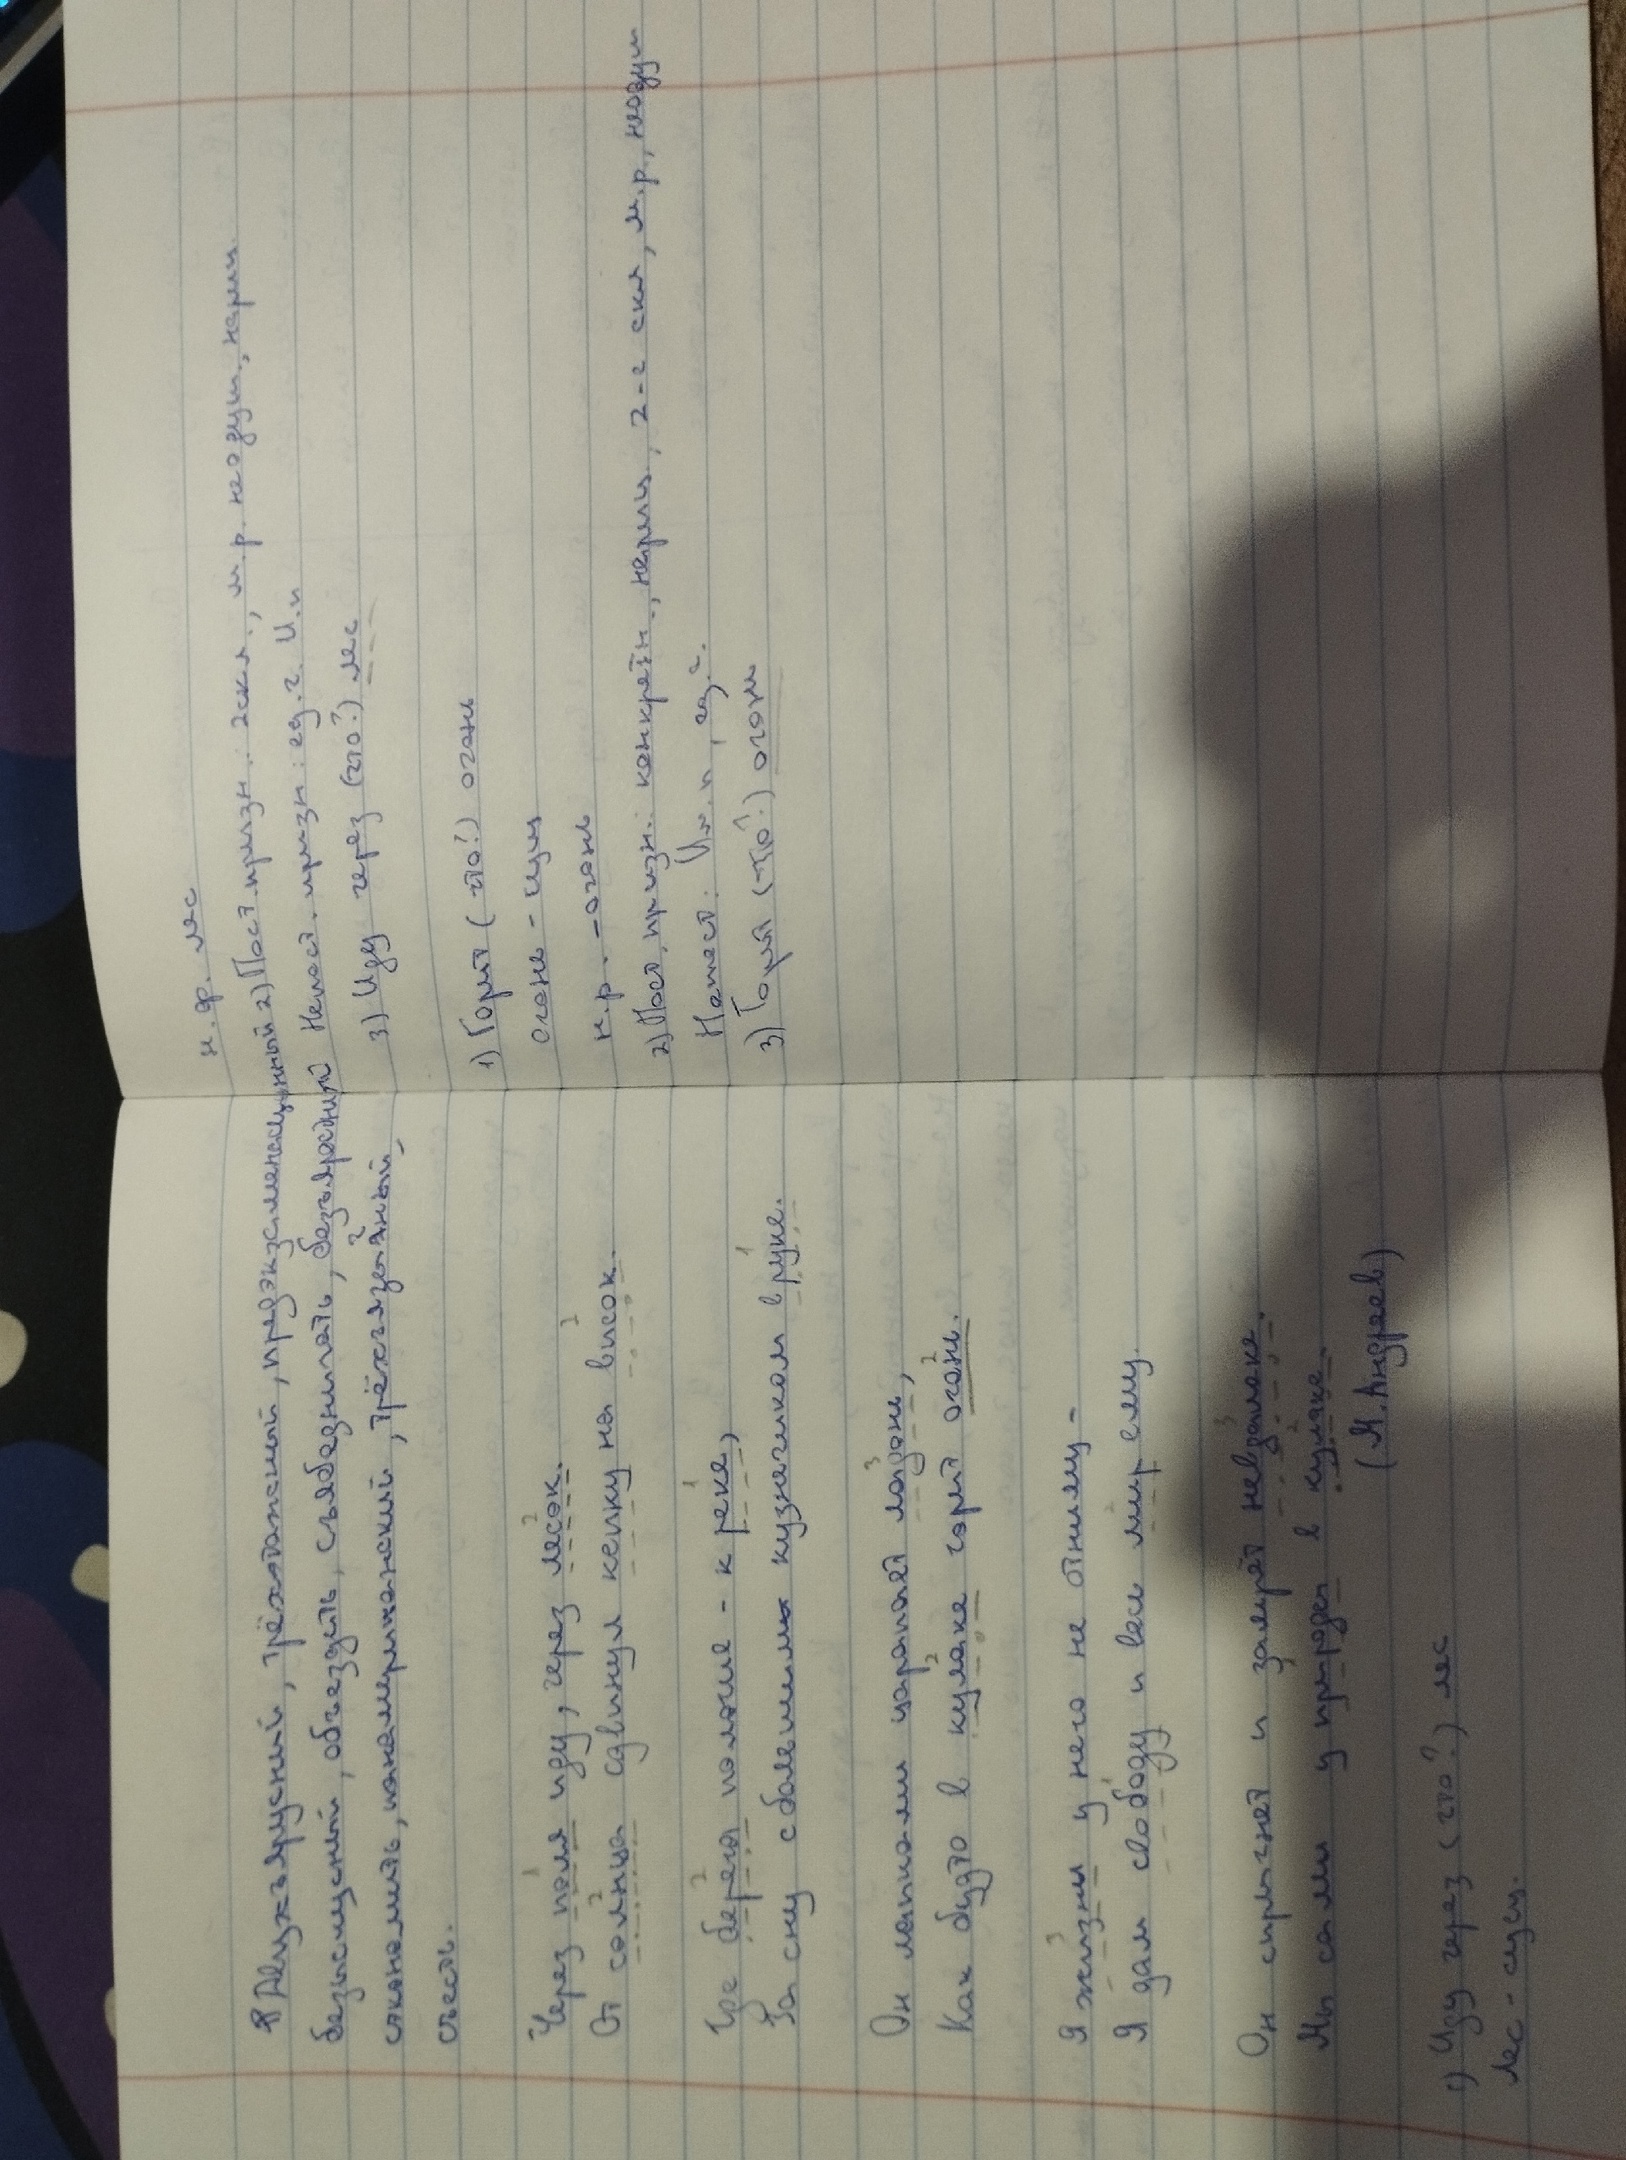 Двухъярусный, трёхэтажный, предэкзаменационный
безыскусный, объездить, съябедничать, безъядерный
сэкономить, панамериканский, трёхъязычный,
съесть.
Через поля иду, через лесок.
От солнца сдвинул кепку на висок.
Где берег положе - к реке,
Засну с большим кузнечиком в руке.
Он лапками царапает ладонь,
Как будто в кулаке горит огонь.
Я жизни у него не отниму -
Я дам свободу и весь мир ему.
Он спрыгнет и замрёт невдалеке.
Мы сами у природы в кулаке.
(М. Андреев)
1) Иду через (что?) лес
Лес - сущ.
н.ф. лес
2) Пост. призн.: 2скл., м.р. неодуш., нариц
Непост. призн: ед.ч. И.п
3) Иду через (что?) лес
1) Горит (что?) огонь
огонь - сущ
н.ф. - огонь
2) Пост, призн: конкретн., нариц, 2-е скл, м.р., неодуш
Непост: Им.п, ед.ч.
3) Горит (что?) огонь